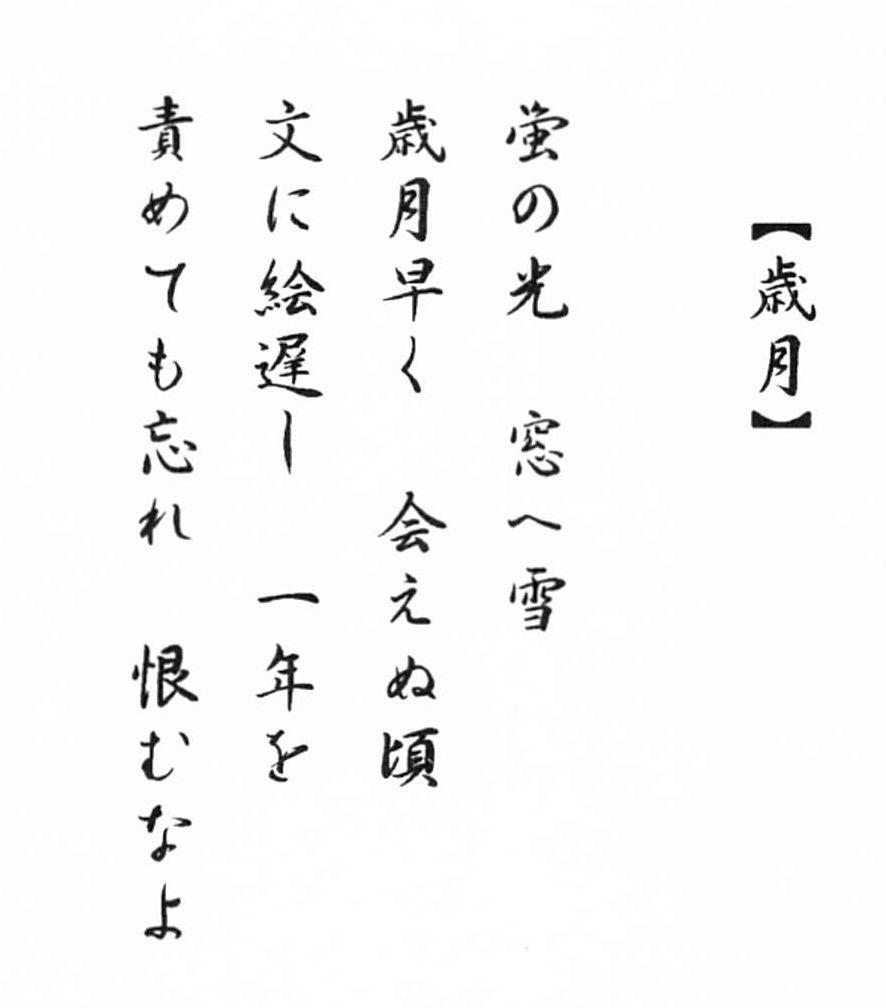 【歳月】
蛍の光　窓へ雪
歳月早く　会えぬ頃
文に絵遅し　一年を
責めても忘れ　恨むなよ